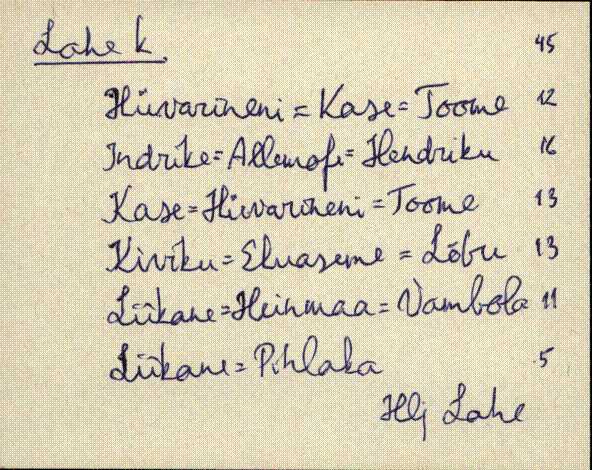 Lahe k. 45
Hüvarineni = Kase = Toome 12
Indrike = Allemofi = Hendriku 16
Kase = Hüvarineni = Toome 13
Kiviku = Eluaseme = Lõbu 13
Liikane = Heinmaa = Vambola 11
Liikane = Pihlaka 5
Hlj Lahe